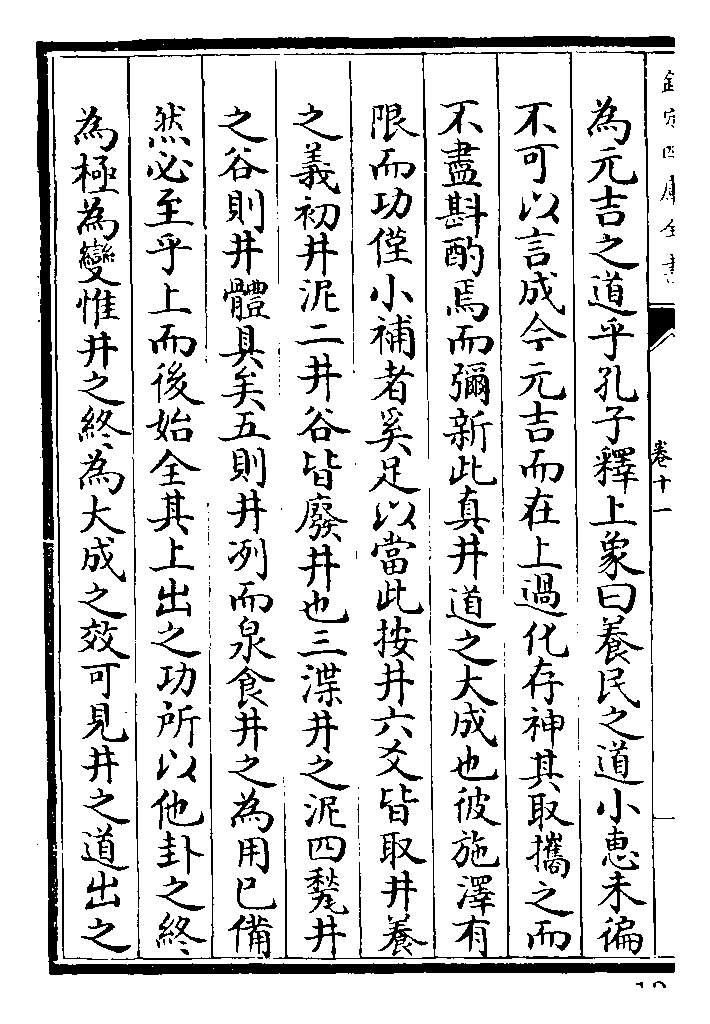 欽定四庫全書
卷十一
為元吉之道乎孔子釋上象曰養民之道小惠未徧
不可以言成今元吉而在上過化存神其取攜之而
不盡斟酌焉而彌新此真井道之大成也彼施澤有
限而功僅小補者奚足以當此按井六爻皆取井養
之義初井泥二井谷皆廢井也三渫井之泥四甃井
之谷則井體具矣五則井冽而泉食井之為用已備
然必至乎上而後始全其上出之功所以他卦之終
為極為變惟井之終為大成之效可見井之道出之